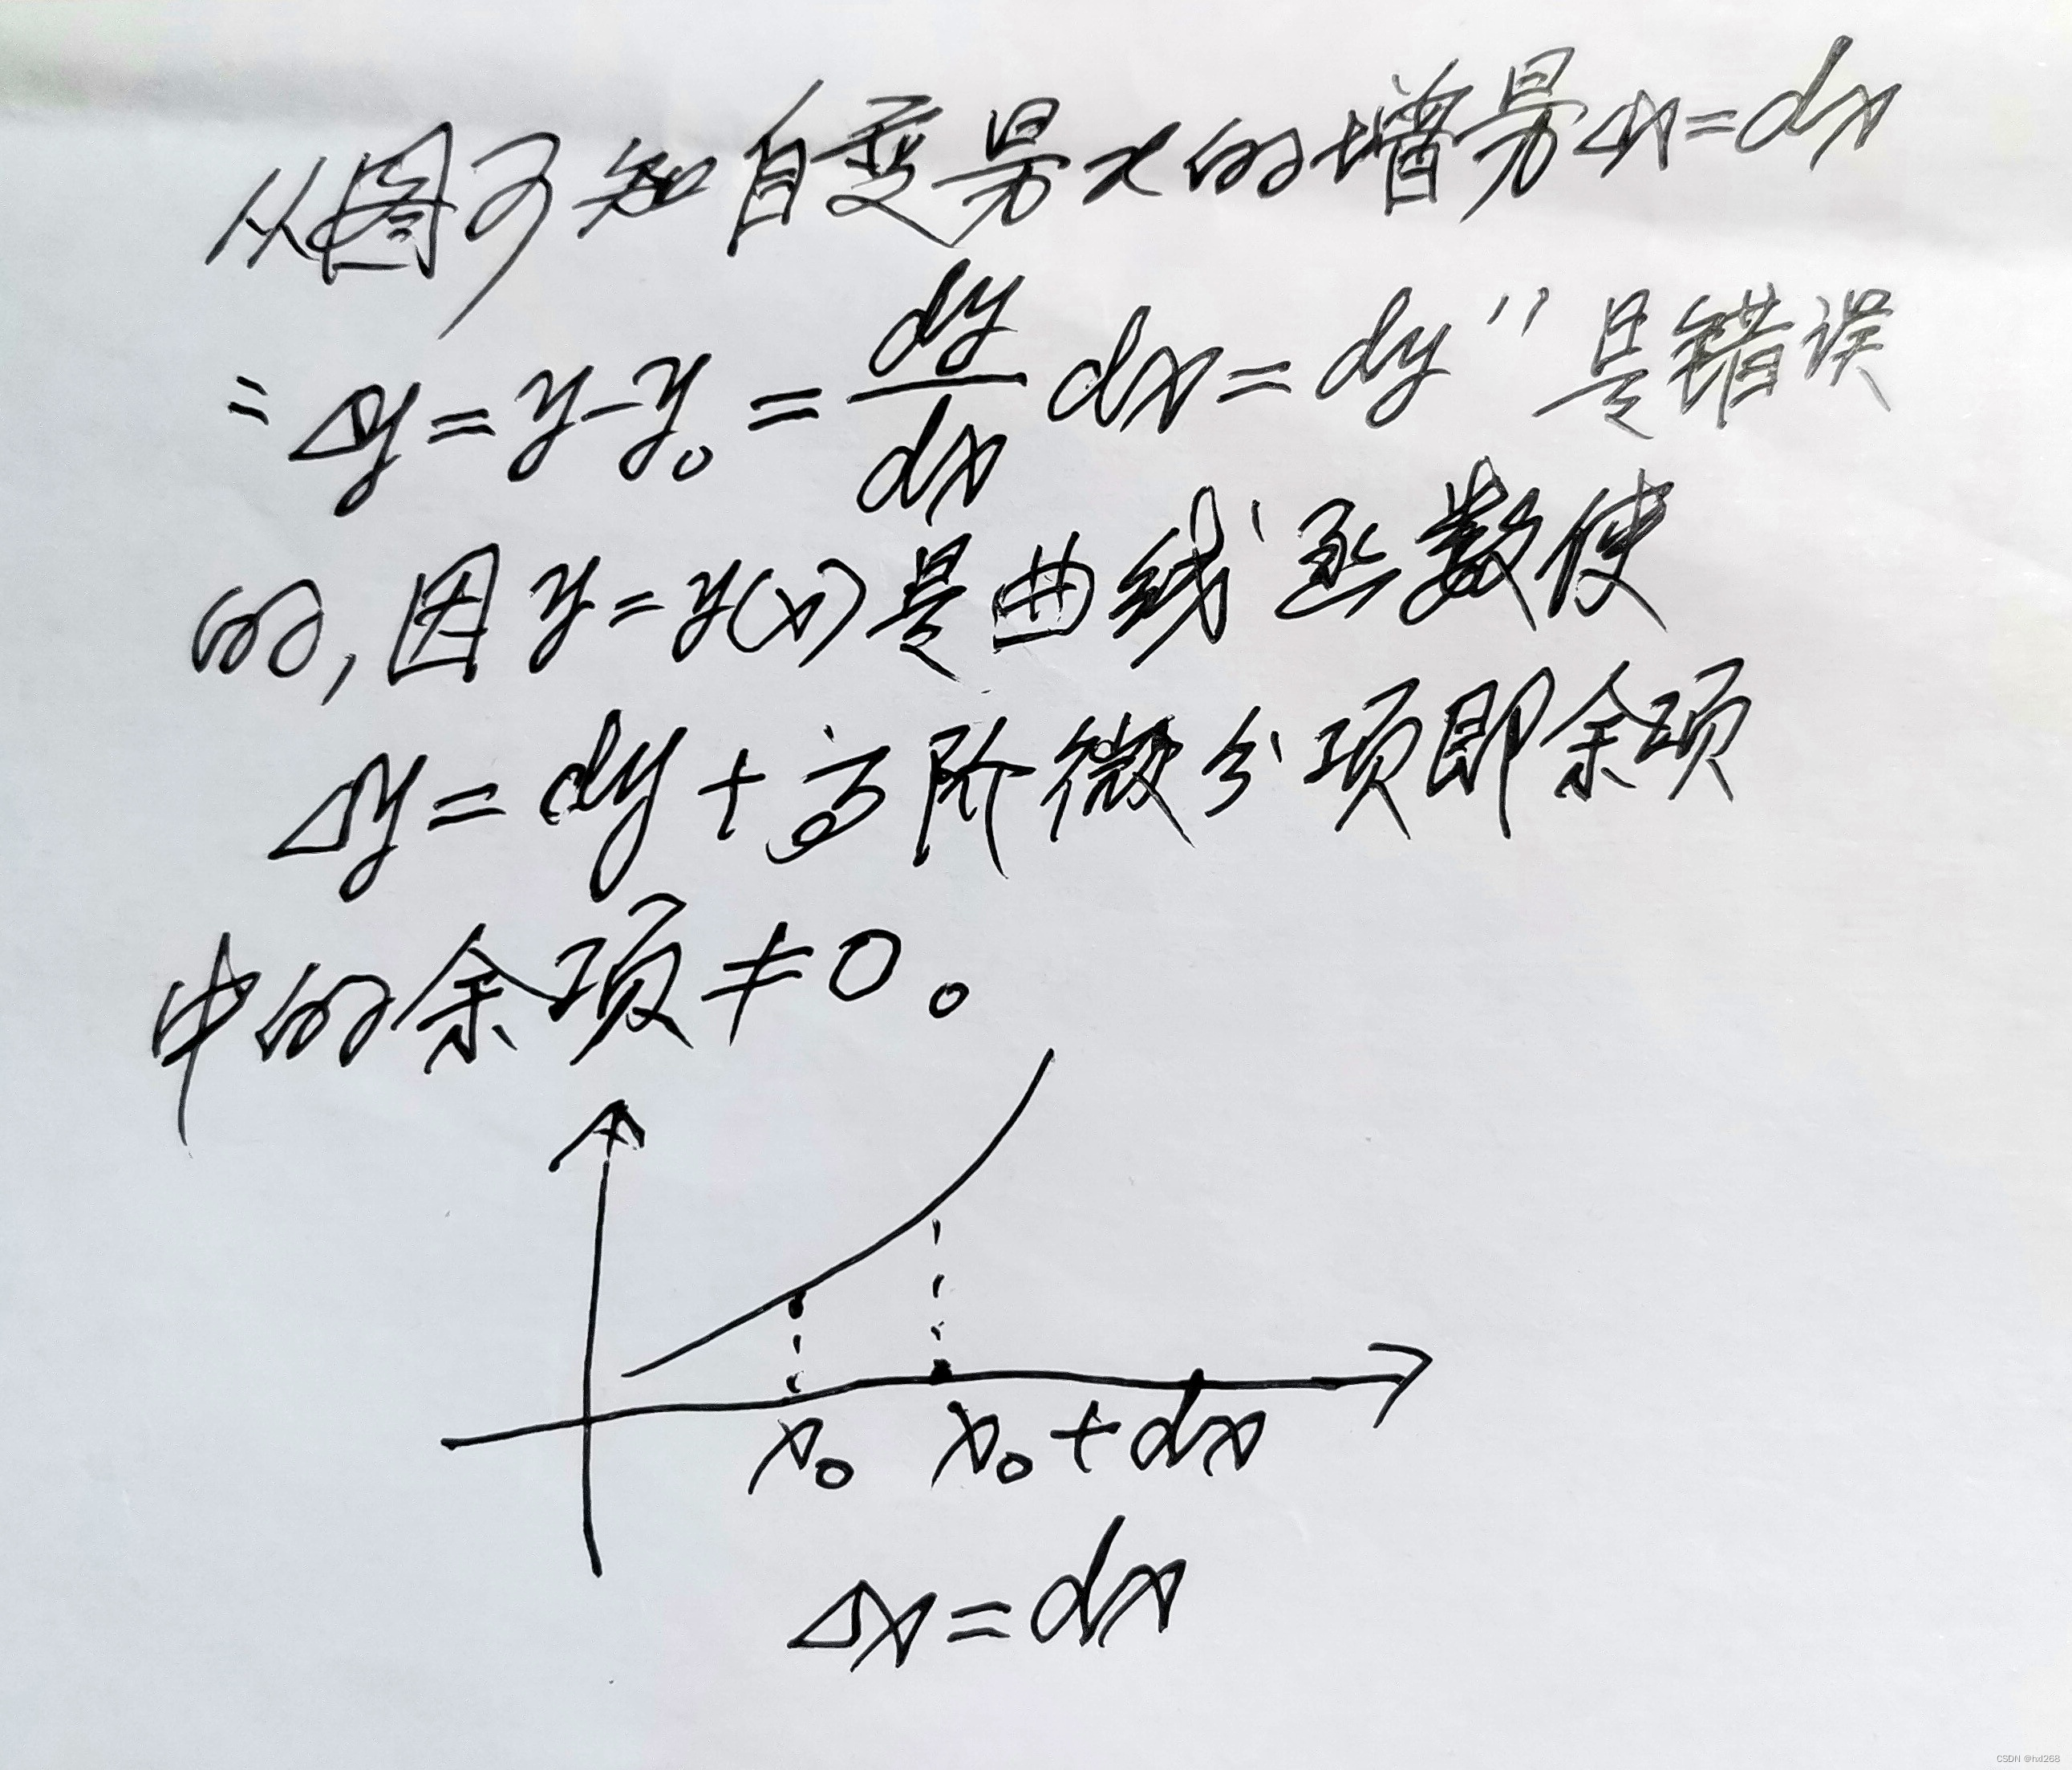 从图可知自变量x的增量Δx=dx
"Δy=y-y₀=\frac{dy}{dx}dx=dy"是错误
的,因y=y(x)是曲线函数使
Δy=dy+高阶微分项即余项
中的余项≠0。
x₀ x₀+dx
Δx=dx
CSDN @hxl268